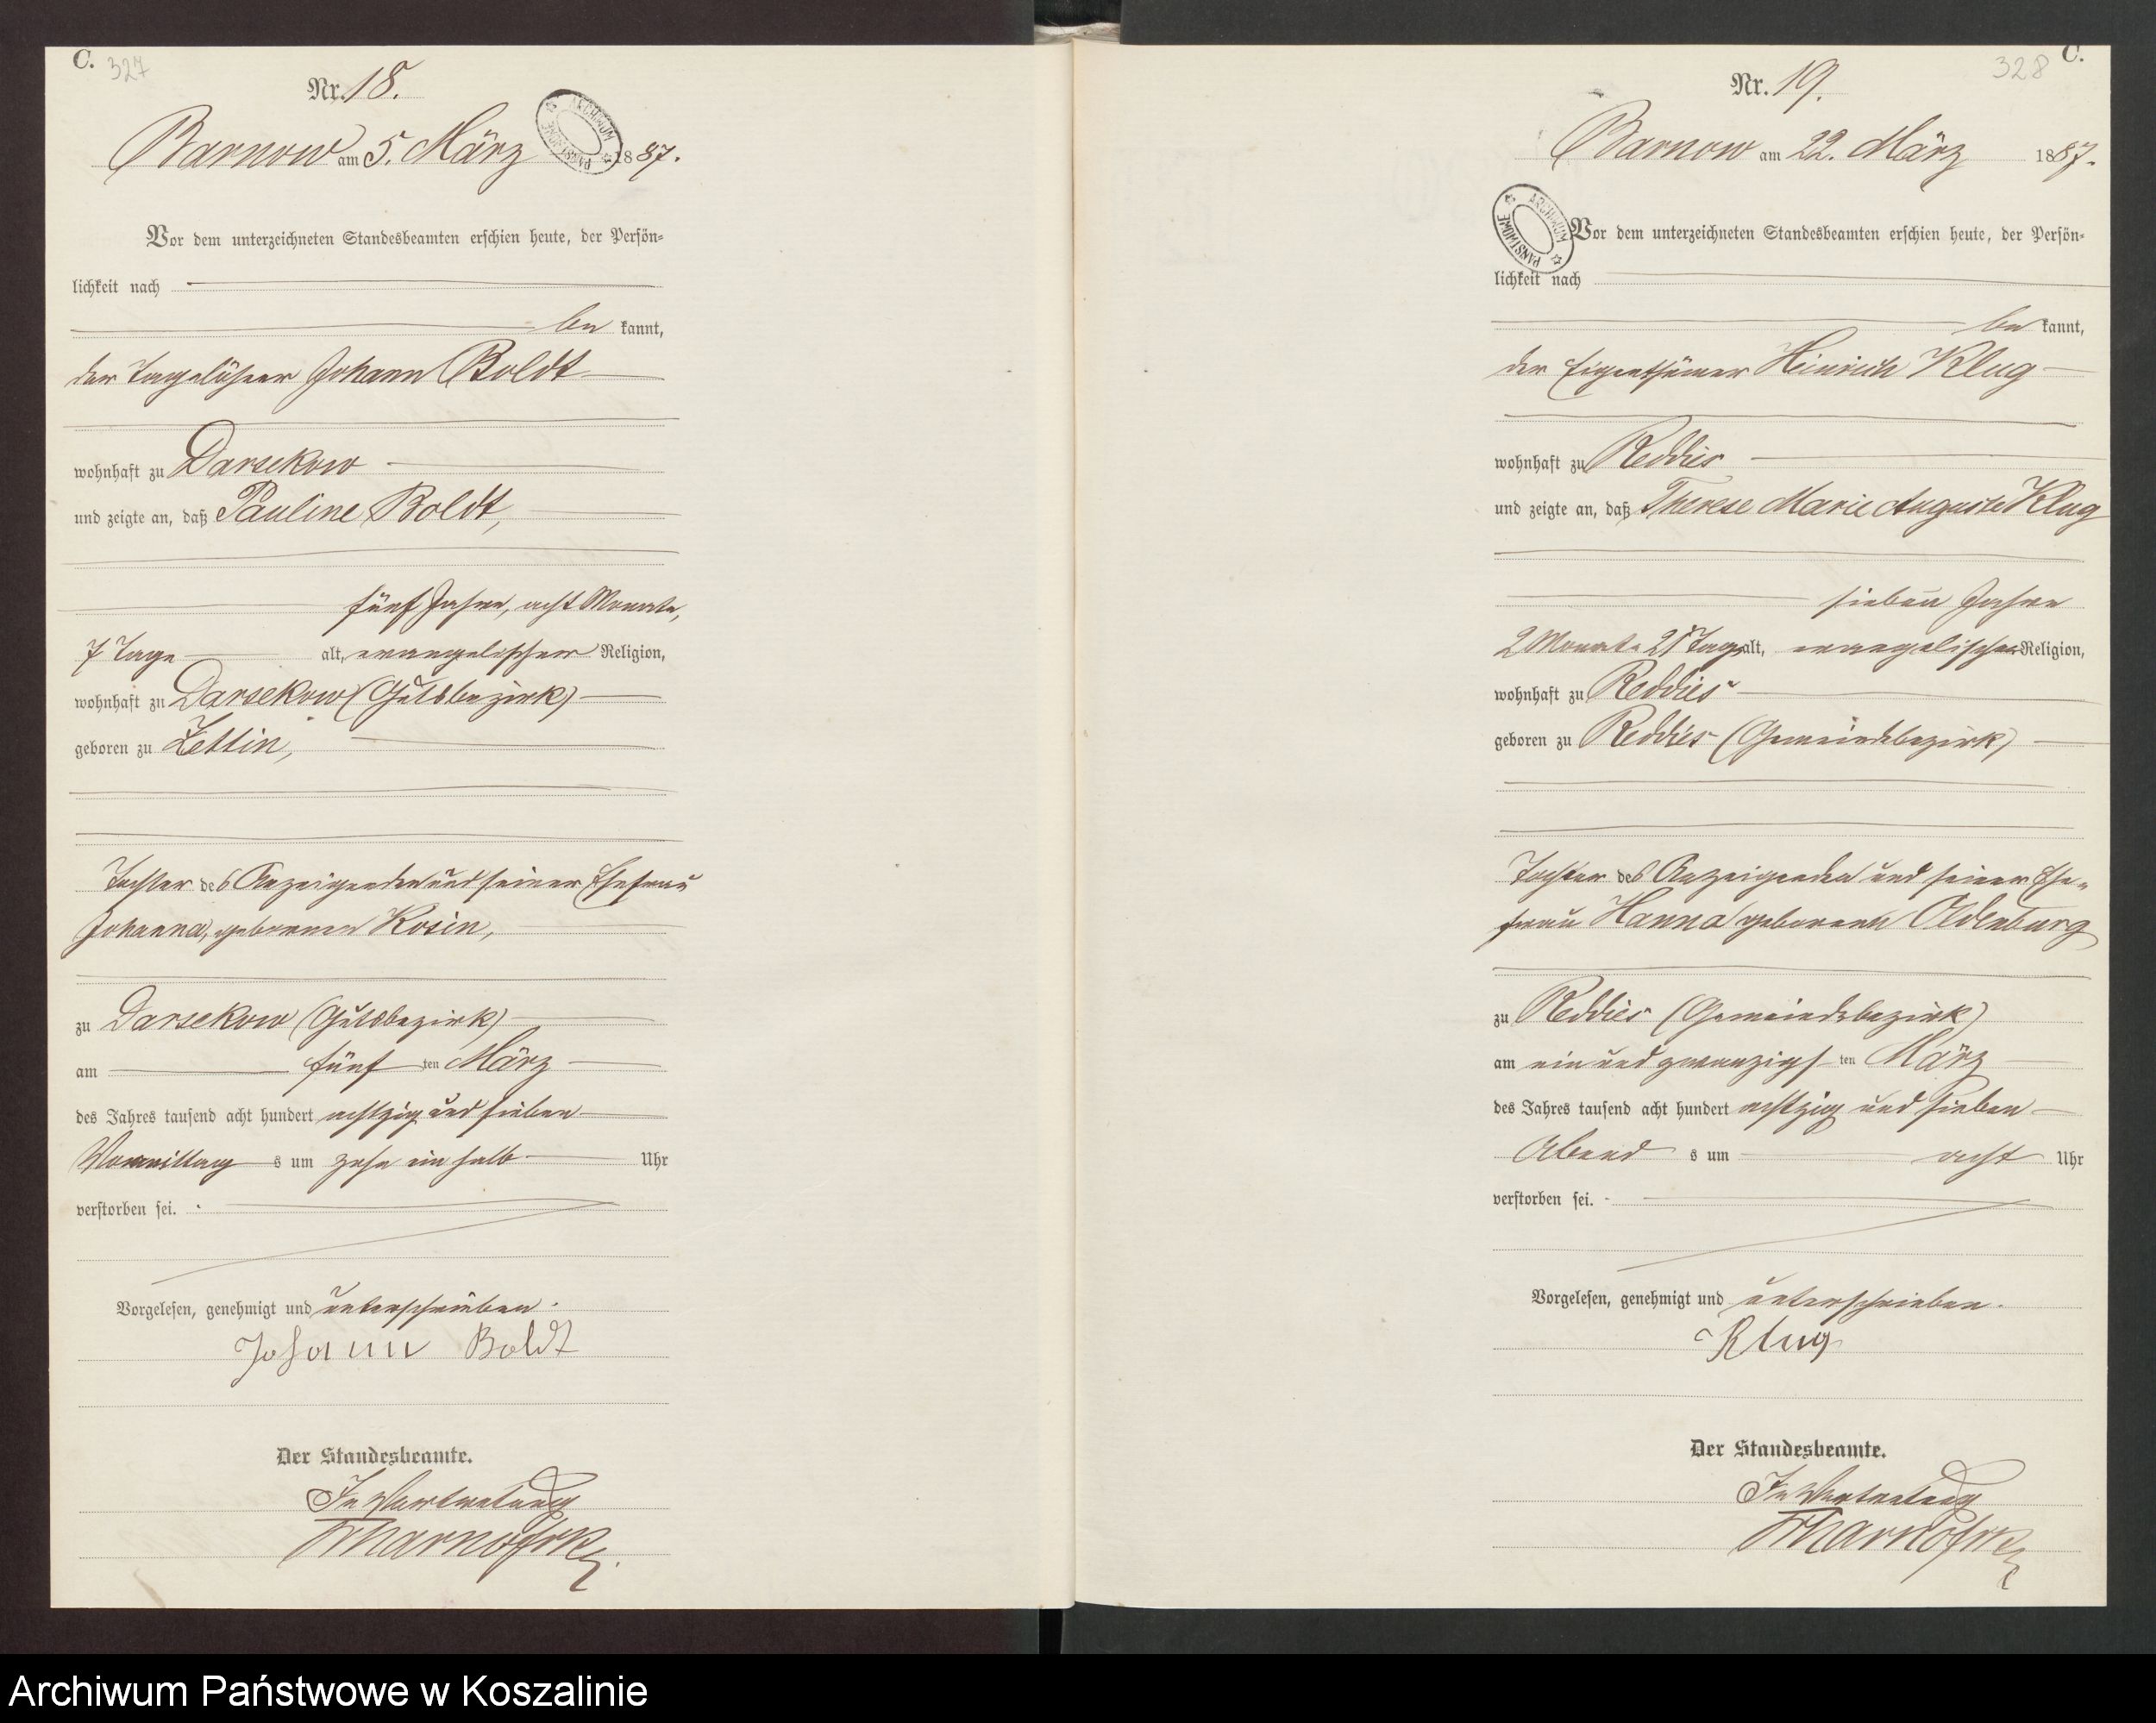 C. 327
Nr. 18.
Barnow am 5. März 1887.
ARCHIWUM PAŃSTWOWE
Vor dem unterzeichneten Standesbeamten erschien heute, der Persön-
lichkeit nach
be kannt,
der Tagelöhner Johann Boldt
wohnhaft zu Darsekow
und zeigte an, daß Pauline Boldt,
fünf Jahre, acht Monate,
7 Tage alt, evangelischer Religion,
wohnhaft zu Darsekow (Gutsbezirk)
geboren zu Zettin,
Tochter des Anzeigenden und seiner Ehefrau
Johanna, geborenen Kosin,
zu Darsekow (Gutsbezirk)
am fünf ten März
des Jahres tausend acht hundert achtzig und sieben
Vormittag s um zehn ein halb Uhr
verstorben sei.
Vorgelesen, genehmigt und unterschrieben.
Johann Boldt
Der Standesbeamte.
In Vertretung
C. 328
Nr. 19.
Barnow am 22. März 1887.
ARCHIWUM PAŃSTWOWE
Vor dem unterzeichneten Standesbeamten erschien heute, der Persön-
lichkeit nach
be kannt,
der Eigenthümer Heinrich Klug
wohnhaft zu Reddies
und zeigte an, daß Therese Marie Auguste Klug
sieben Jahre
2 Monate 21 Tage alt, evangelischer Religion,
wohnhaft zu Reddies
geboren zu Reddies (Gemeindebezirk)
Tochter des Anzeigenden und seiner Ehe-
frau Hanna geborenen Oldenburg
zu Reddies (Gemeindebezirk)
am ein und zwanzigs ten März
des Jahres tausend acht hundert achtzig und sieben
Abend s um acht Uhr
verstorben sei.
Vorgelesen, genehmigt und unterschrieben.
Klug
Der Standesbeamte.
In Vertretung
Archiwum Państwowe w Koszalinie